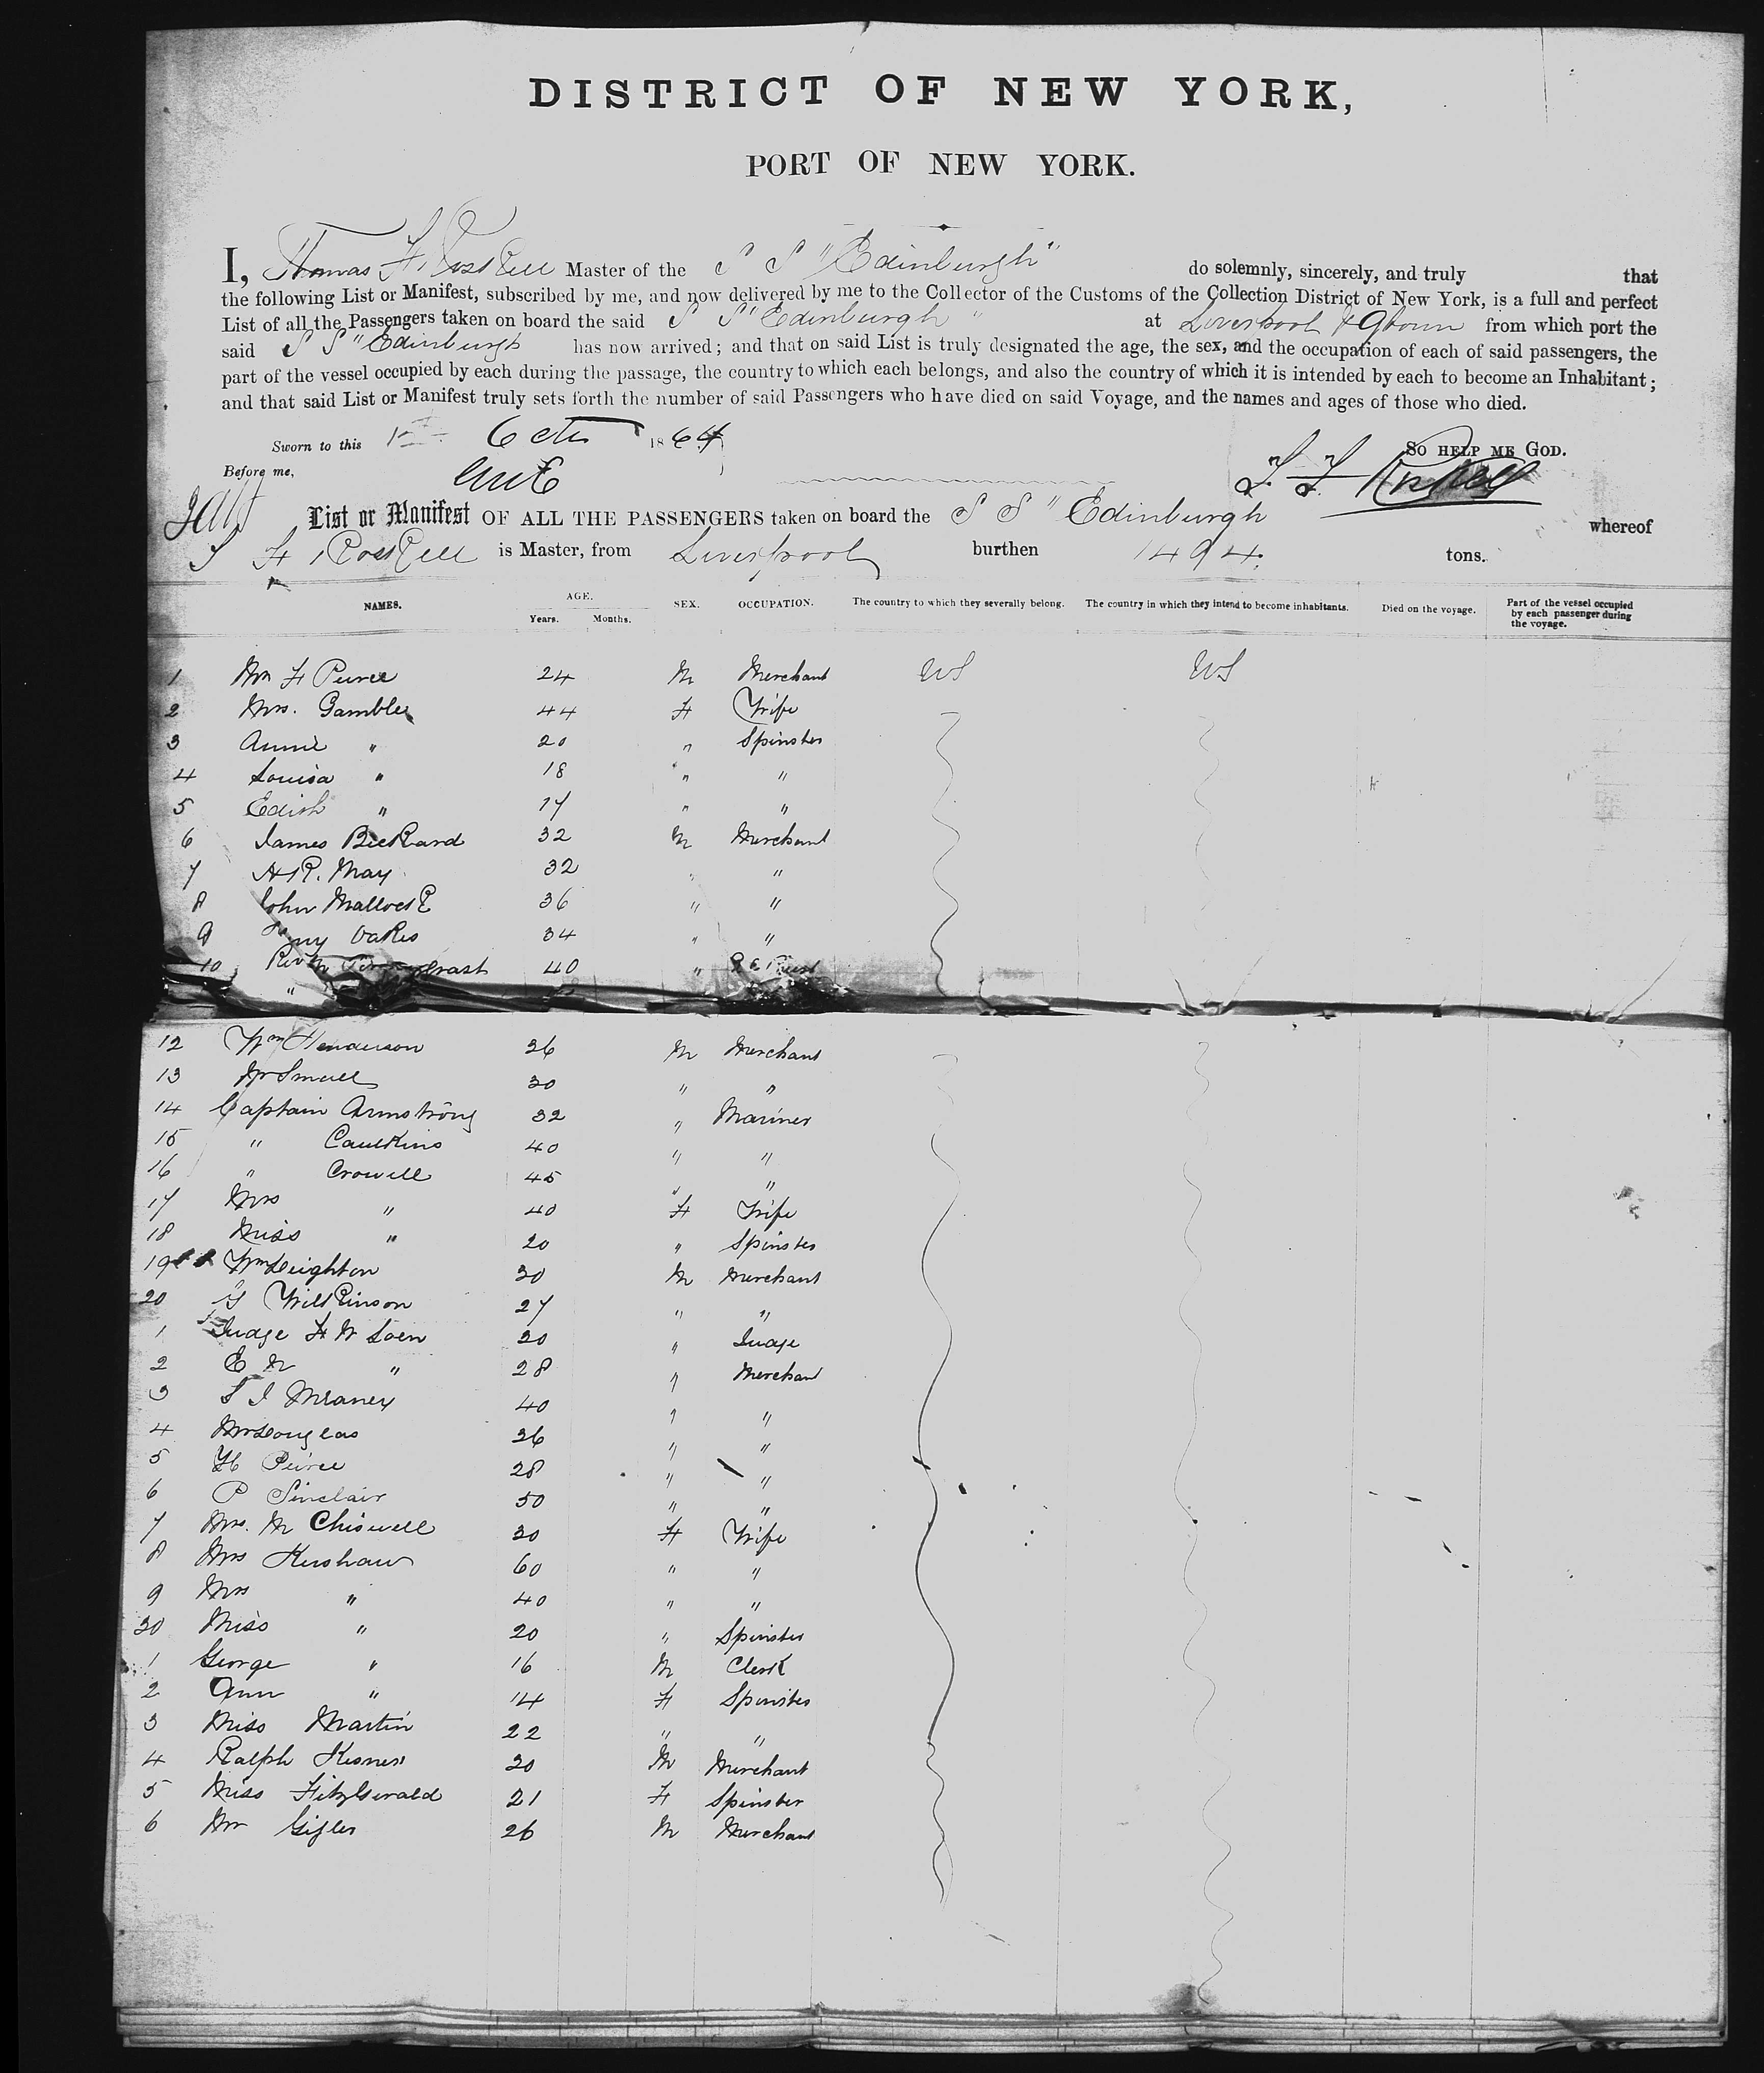 DISTRICT OF NEW YORK,
PORT OF NEW YORK.
I, Thomas F. Roskell Master of the S S "Edinburgh" do solemnly, sincerely, and truly that
the following List or Manifest, subscribed by me, and now delivered by me to the Collector of the Customs of the Collection District of New York, is a full and perfect
List of all the Passengers taken on board the said S S "Edinburgh" at Liverpool & from which port the
said S S "Edinburgh has now arrived; and that on said List is truly designated the age, the sex, and the occupation of each of said passengers, the
part of the vessel occupied by each during the passage, the country to which each belongs, and also the country of which it is intended by each to become an Inhabitant;
and that said List or Manifest truly sets forth the number of said Passengers who have died on said Voyage, and the names and ages of those who died.
Sworn to this 1st Octr 1864 So HELP ME GOD.
Before me,
List or Manifest OF ALL THE PASSENGERS taken on board the S S "Edinburgh whereof
Roskell is Master, from Liverpool burthen 1494. tons.
NAMES. AGE. Years. Months. SEX. OCCUPATION. The country to which they severally belong. The country in which they intend to become inhabitants. Died on the voyage. Part of the vessel occupied by each passenger during the voyage.
1 Wm F Peirce 24 M Merchant US US
2 Mrs. Gambles 44 F Wife
3 Annie " 20 " Spinster
4 Louisa " 18 " "
5 Edith " 17 " "
6 James Bickard 32 M Merchant
7 H R. May 32 " "
8 John Mallock 36 " "
9 Oakes 34 " "
10 Rev 40 "
"
12 Wm Henderson 36 M Merchant
13 Mr Small 30 " "
14 Captain Armstrong 32 " Mariner
15 " Caulkins 40 " "
16 " Crowell 45 " "
17 Mrs " 40 F Wife
18 Miss " 20 " Spinster
19 Wm Leighton 30 M Merchant
20 Wilkinson 27 " "
1 Judge F W Loen 30 " Judge
2 E M " 28 " Merchant
3 40 " "
4 Mr Douglas 36 " "
5 Peirce 28 " "
6 P Sinclair 50 " "
7 Mrs. M Chiswell 30 F Wife
8 Mrs Kershaw 60 " "
9 Mrs " 40 " "
30 Miss " 20 " Spinster
1 George " 16 M Clerk
2 Ann " 14 F Spinster
3 Miss Martin 22 " "
4 Ralph 30 M Merchant
5 Miss FitzGerald 21 F Spinster
6 Mr 26 M Merchant